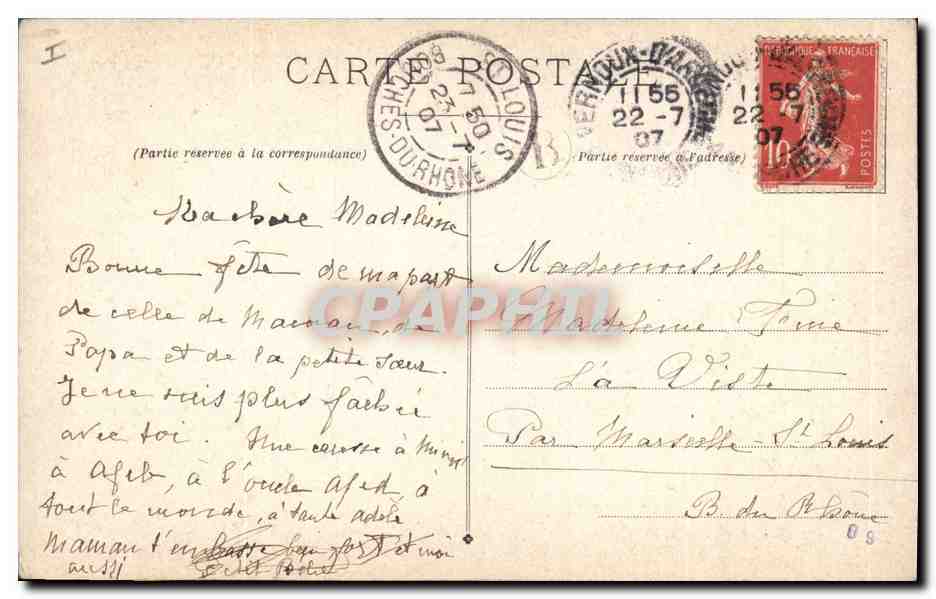 I
CARTE POSTALE
ST LOUIS
7 50
23 -7
07
BCHES-DU-RHONE
VERNOUX-D'ARDECHE
11 55
22 -7
07
11 55
22 -7
07
REPUBLIQUE FRANÇAISE
10
POSTES
B
(Partie réservée à la correspondance)
(Partie réservée à l'adresse)
Ma chère Madeleine
Bonne fête de ma part
de celle de Maman, de
Papa et de la petite sœur.
Je ne suis plus fâché
avec toi. Une caresse à
à, à l'oncle, à
tout le monde, à tante adèle
Maman t'embrasse bien fort et moi
aussi
Mademoiselle
Madeleine
La Viste
Par Marseille - St Louis
B. du Rhône
09
CPAPHIL